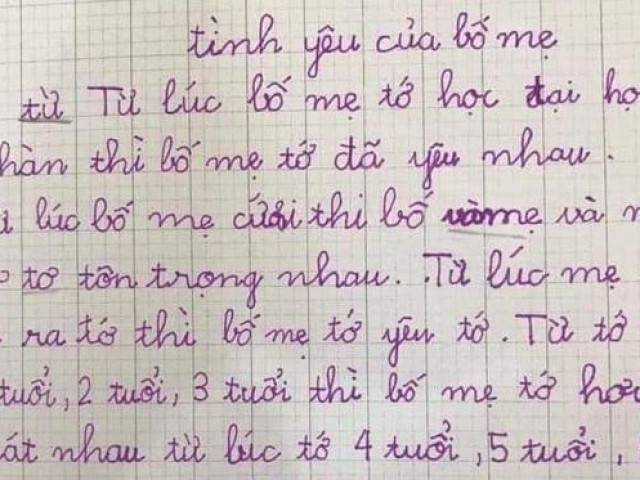 tình yêu của bố mẹ
từ Từ lúc bố mẹ tớ học đại họ
hàn thì bố mẹ tớ đã yêu nhau.
lúc bố mẹ cưới thì bố và mẹ và
tơ tôn trọng nhau. Từ lúc mẹ
ra tớ thì bố mẹ tớ yêu tớ. Từ tớ
tuổi, 2 tuổi, 3 tuổi thì bố mẹ tớ hơ
át nhau từ lúc tớ 4 tuổi, 5 tuổi,